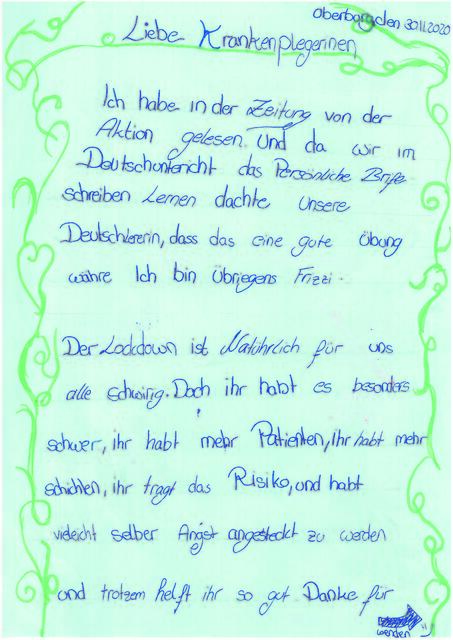 Oberborgden 30.11.2020
Liebe Krankenplegerinnen
Ich habe in der Zeitung von der
Aktion gelesen. Und da wir im
Deutschunterricht das Persönliche Briefe
schreiben Lernen dachte Unsere
Deutschlererin, dass das eine gute Übung
währe Ich bin Übriegens Frizzi.
Der Lockdown ist Natührlich für uns
alle schwirig. Doch ihr habt es besonders
schwer, ihr habt mehr Patienten, Ihr habt mehr
schichten, ihr tragt das Risiko, und habt
vieleicht selber Angst angesteckt zu werden
und trotzem helft ihr so gut Danke für
wenden